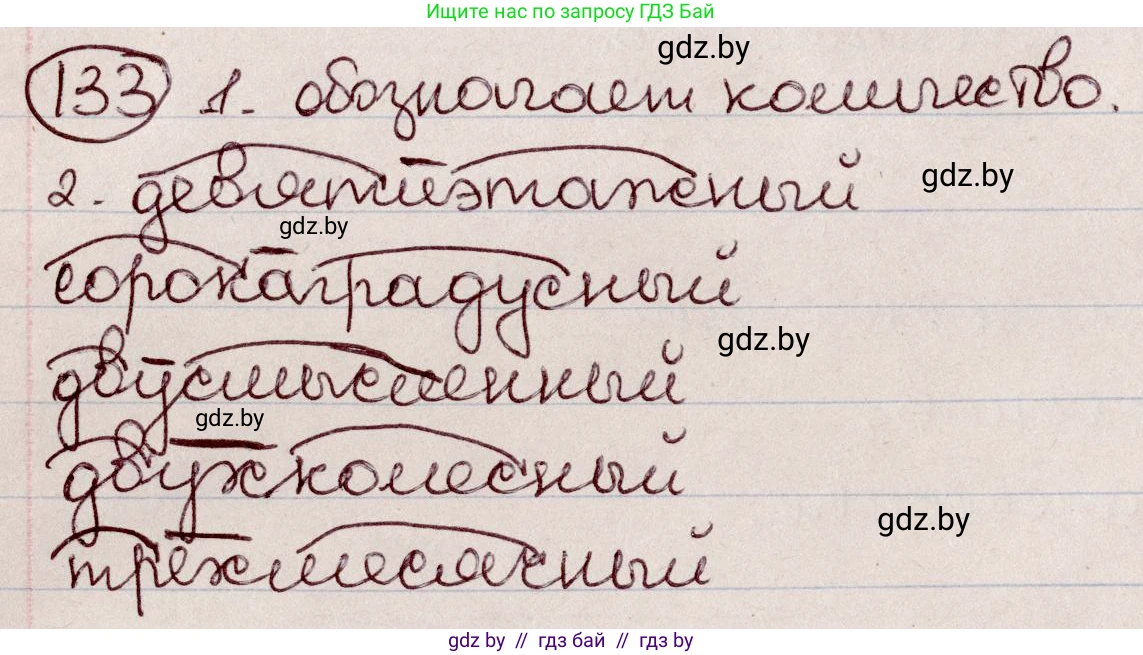 Ищите нас по запросу ГДЗ Бай
gdz.by
133 1. обозначает количество.
2. девятиэтажный
gdz.by
gdz.by
сорокаградусный
gdz.by
двусмысленный
gdz.by
двухколесный
gdz.by
трёхмесячный
gdz by // гдз бай // гдз by